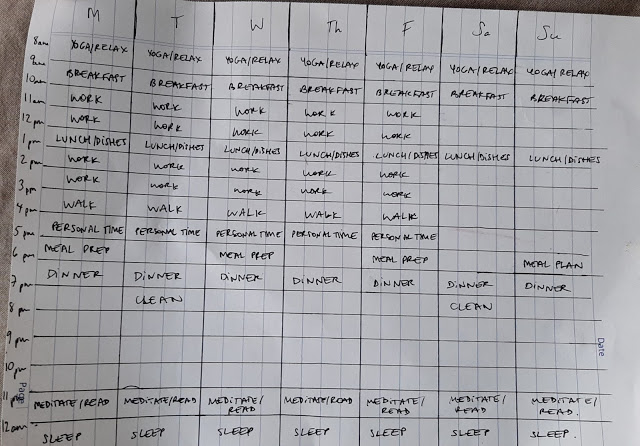 M T W Th F Sa Su
8am
YOGA/RELAX YOGA/RELAX YOGA/RELAX YOGA/RELAX YOGA/RELAX YOGA/RELAX YOGA/RELAX
9am
BREAKFAST BREAKFAST BREAKFAST BREAKFAST BREAKFAST BREAKFAST BREAKFAST
10am
WORK WORK WORK WORK WORK
11am
WORK WORK WORK WORK WORK
12pm
LUNCH/DISHES LUNCH/DISHES LUNCH/DISHES LUNCH/DISHES LUNCH/DISHES LUNCH/DISHES LUNCH/DISHES
1pm
WORK WORK WORK WORK WORK
2pm
WORK WORK WORK WORK WORK
3pm
WALK WALK WALK WALK WALK
4pm
PERSONAL TIME PERSONAL TIME PERSONAL TIME PERSONAL TIME PERSONAL TIME
5pm
MEAL PREP MEAL PREP MEAL PREP MEAL PLAN
6pm
DINNER DINNER DINNER DINNER DINNER DINNER DINNER
7pm
CLEAN CLEAN
8pm
9pm
10pm
Page
Date
11pm
MEDITATE/READ MEDITATE/READ MEDITATE/ READ MEDITATE/READ MEDITATE/ READ MEDITATE/ READ MEDITATE/ READ.
12am
SLEEP SLEEP SLEEP SLEEP SLEEP SLEEP SLEEP.